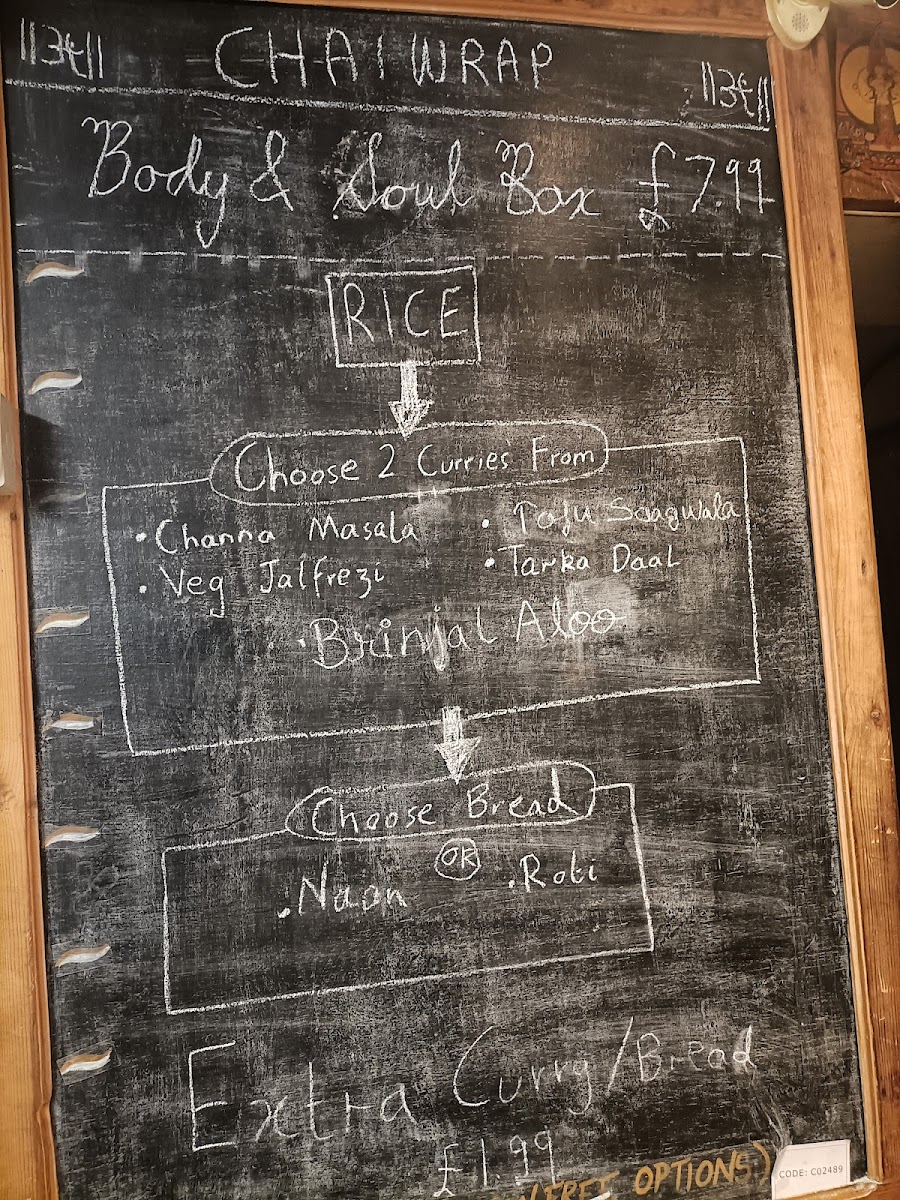 CHAI WRAP
Body & Soul Box £7.99
RICE
Choose 2 Curries From
• Channa Masala
• Tofu Saagwala
• Veg Jalfrezi
• Tarka Daal
• Brinjal Aloo
Choose Bread
• Naan
OR
• Roti
Extra Curry/Bread
£1.99
OPTIONS)
CODE: C02489